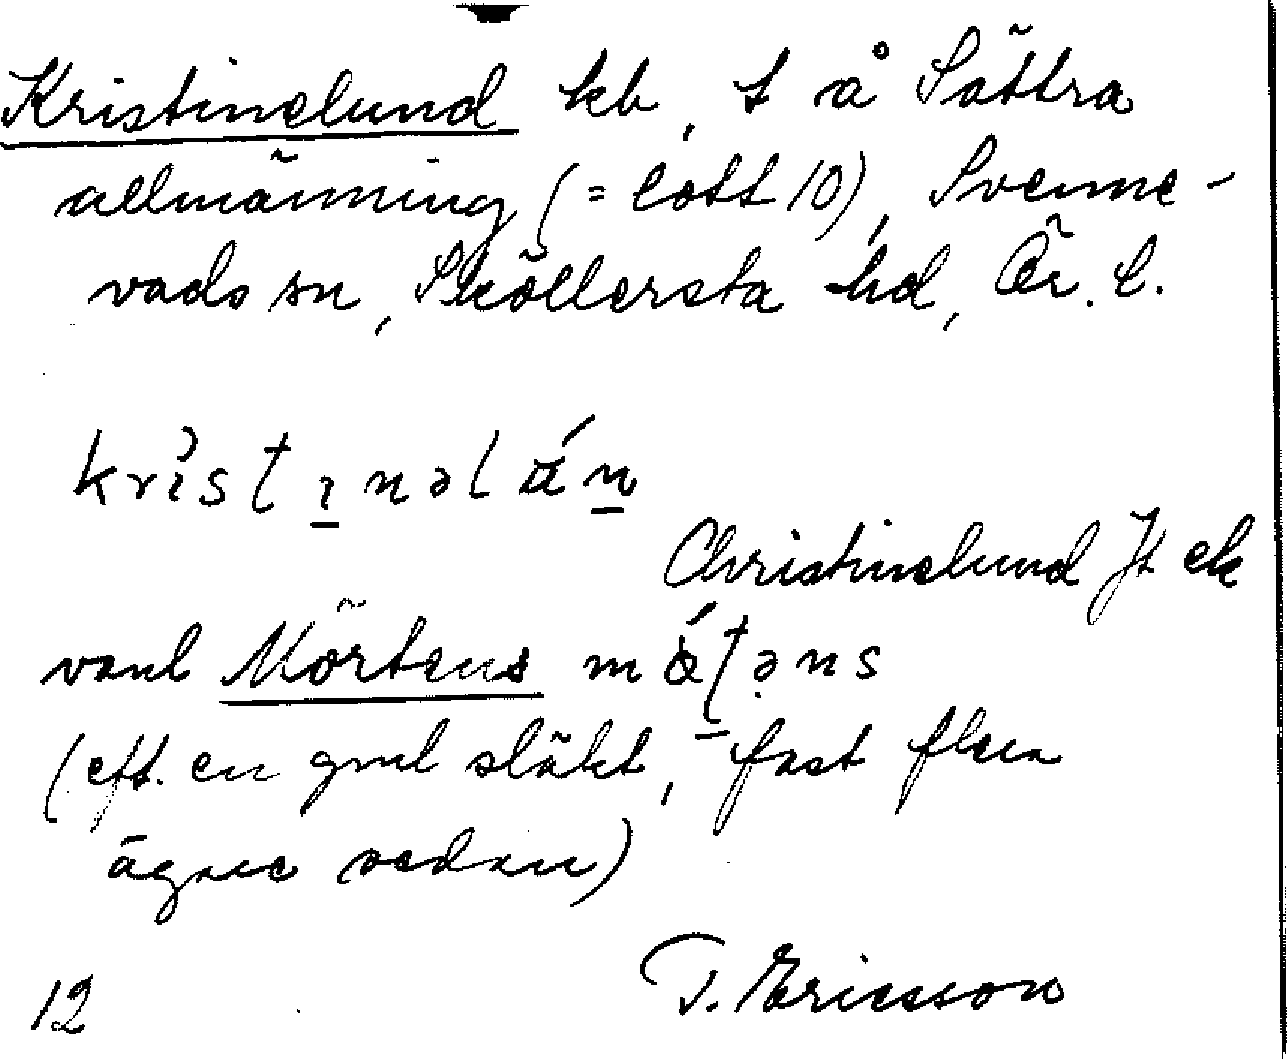 Kristinelund kb, t å Sättra
allmänning (= lott 10), Svenne-
vads sn, Sköllersta hd, Ör. l.
Christinelund Jt ek
vanl Mörtens
(eft. en gml släkt, fast flera
ägare sedan)
12 T. Ericsson